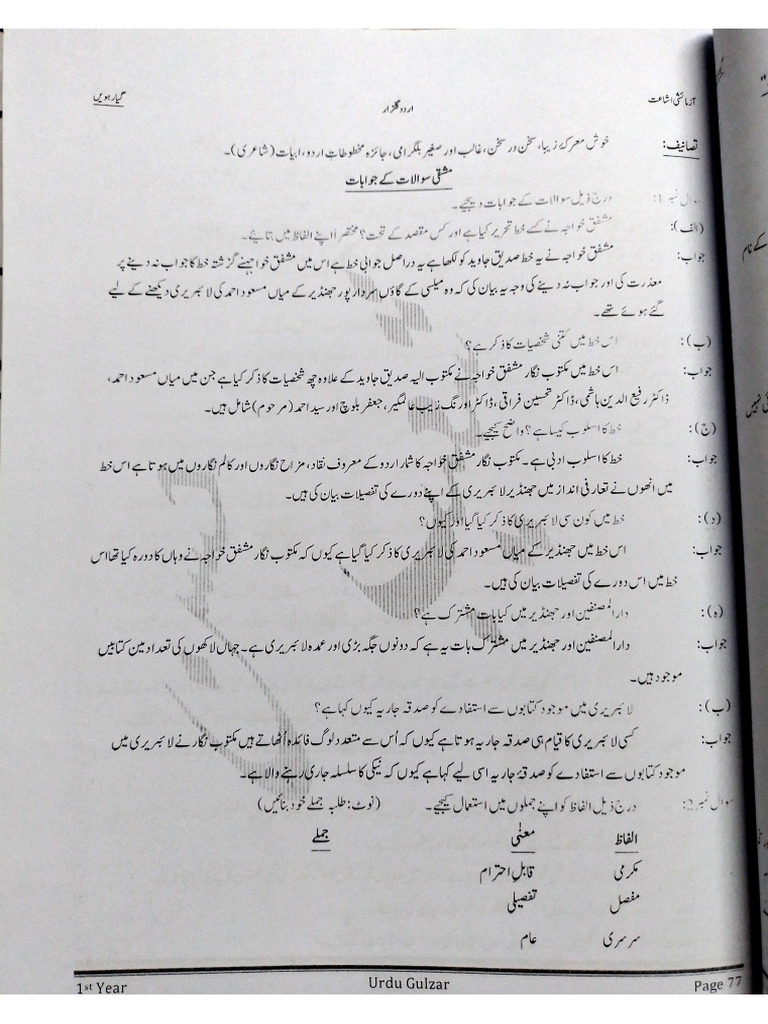 آزمائشی اشاعت
اردو گلزار
گیارہویں
تصانیف: خوش معرکۂ زیبا، سخن در سخن، غالب اور صغیر بلگرامی، جائزہ مخطوطاتِ اردو، ابیات (شاعری)۔
مشقی سوالات کے جوابات
سوال نمبر1: درج ذیل سوالات کے جوابات دیجیے۔
(الف): مشفق خواجہ نے کسے خط تحریر کیا ہے اور کس مقصد کے تحت؟ مختصراً اپنے الفاظ میں بتائیے۔
جواب: مشفق خواجہ نے یہ خط صدیق جاوید کو لکھا ہے یہ دراصل جوابی خط ہے اس میں مشفق خواجہنے گزشتہ خط کا جواب نہ دینے پر
معذرت کی اور جواب نہ دینے کی وجہ یہ بیان کی کہ وہ میلسی کے گاؤں سردار پور جھنڈیر کے میاں مسعود احمد کی لائبریری دیکھنے کے لیے
گئے ہوئے تھے۔
(ب): اس خط میں کتنی شخصیات کا ذکر ہے؟
جواب: اس خط میں مکتوب نگار مشفق خواجہ نے مکتوب الیہ صدیق جاوید کے علاوہ چھ شخصیات کا ذکر کیا ہے جن میں میاں مسعود احمد،
ڈاکٹر رفیع الدین ہاشمی، ڈاکٹر تحسین فراقی، ڈاکٹر اورنگ زیب عالمگیر، جعفر بلوچ اور سید احمد (مرحوم) شامل ہیں۔
(ج): خط کا اسلوب کیسا ہے؟ واضح کیجیے۔
جواب: خط کا اسلوب ادبی ہے۔ مکتوب نگار مشفق خواجہ کا شمار اردو کے معروف نقاد، مزاح نگاروں اور کالم نگاروں میں ہوتا ہے اس خط
میں انھوں نے تعارفی انداز میں جھنڈیر لائبریری کے اپنے دورے کی تفصیلات بیان کی ہیں۔
(د): خط میں کون سی لائبریری کا ذکر کیا گیا اور کیوں؟
جواب: اس خط میں جھنڈیر کے میاں مسعود احمد کی لائبریری کا ذکر کیا گیا ہے کیوں کہ مکتوب نگار مشفق خواجہ نے وہاں کا دورہ کیا تھا اس
خط میں اس دورے کی تفصیلات بیان کی ہیں۔
(ہ): دارالمصنفین اور جھنڈیر میں کیا بات مشترک ہے؟
جواب: دارالمصنفین اور جھنڈیر میں مشترک بات یہ ہے کہ دونوں جگہ بڑی اور عمدہ لائبریری ہے۔ جہاں لاکھوں کی تعداد میں کتابیں
موجود ہیں۔
(ب): لائبریری میں موجود کتابوں سے استفادے کو صدقہ جاریہ کیوں کہا ہے؟
جواب: کسی لائبریری کا قیام ہی صدقہ جاریہ ہوتا ہے کیوں کہ اُس سے متعدد لوگ فائدہ اُٹھاتے ہیں مکتوب نگار نے لائبریری میں
موجود کتابوں سے استفادے کو صدقۂ جاریہ اسی لیے کہا ہے کیوں کہ نیکی کا سلسلہ جاری رہنے والا ہے۔
سوال نمبر2: درج ذیل الفاظ کو اپنے جملوں میں استعمال کیجیے۔ (نوٹ: طلبہ جملے خود بنائیں)
الفاظ معنٰی جملے
مکرمی قابلِ احترام
مفصل تفصیلی
سرسری عام
1st Year Urdu Gulzar Page 77